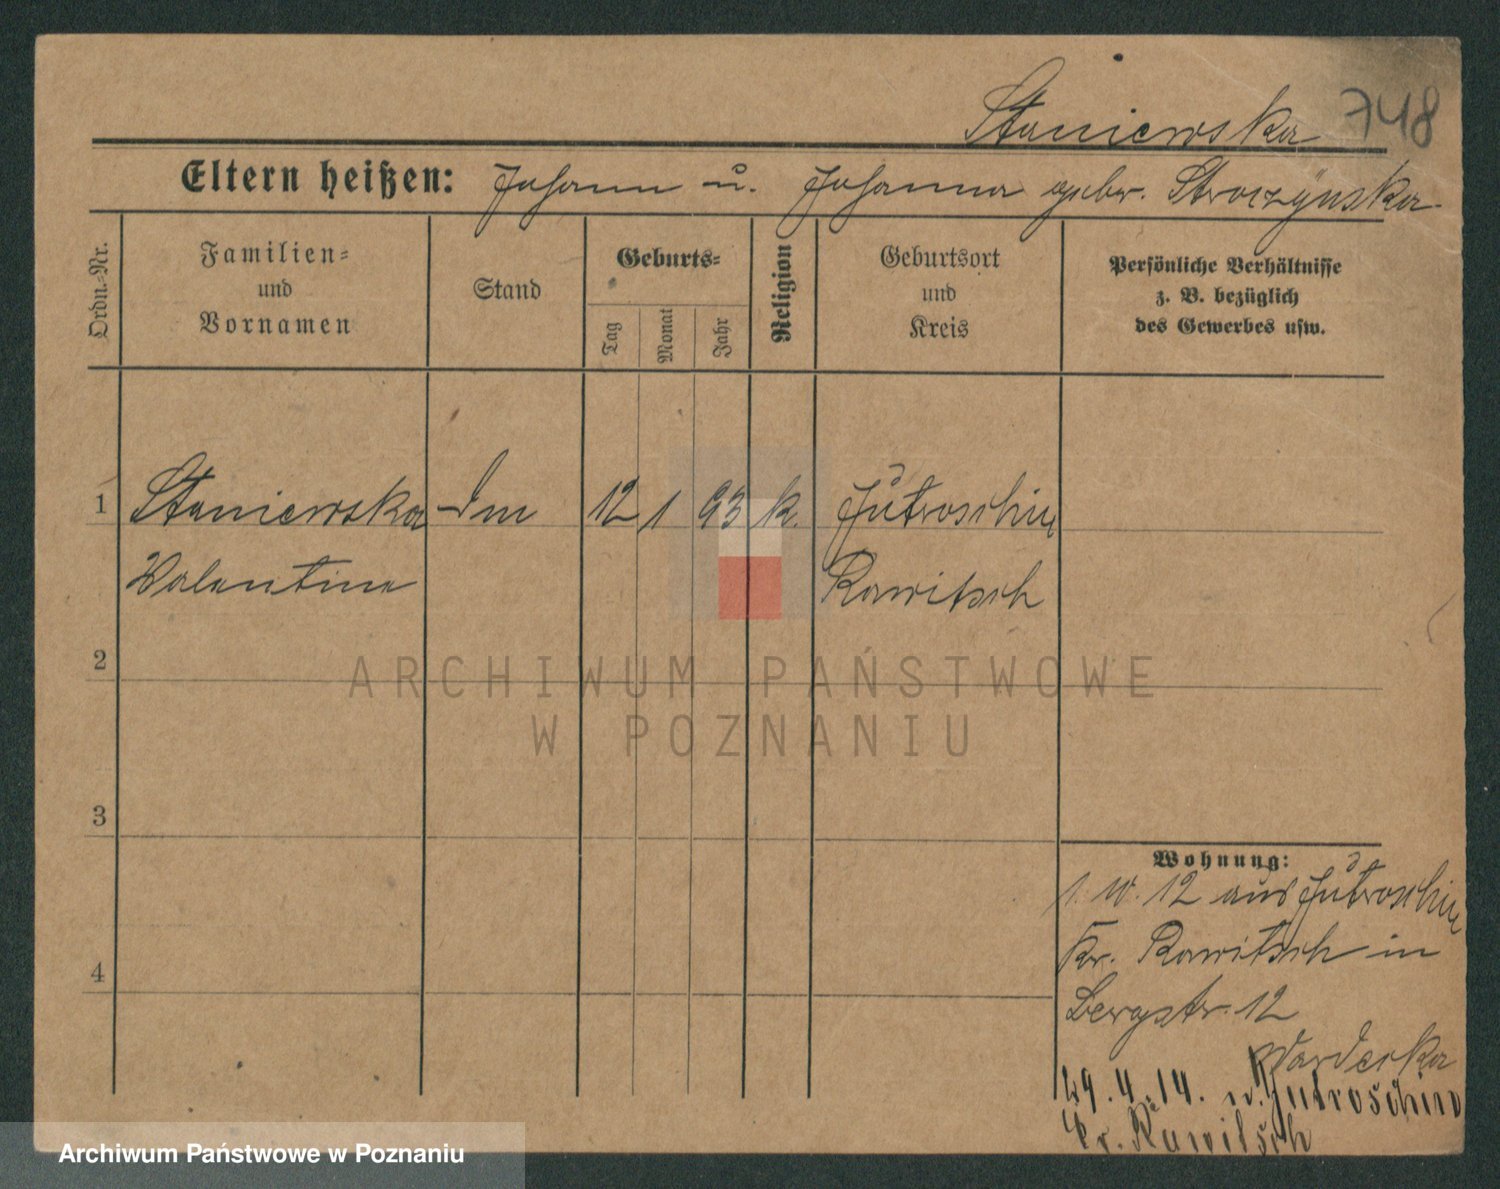 Staniewska 748
Eltern heißen: Johann u. Johanna gebr. Stroczynska
Ordn.-Nr.
Familien-
und
Vornamen
Stand
Geburts-
Tag
Monat
Jahr
Religion
Geburtsort
und
Kreis
Persönliche Verhältnisse
z. B. bezüglich
des Gewerbes usw.
1 Staniewska 12 1 93 k. Jutroschin
Valentine Rawitsch
2
3
4
ARCHIWUM PAŃSTWOWE
W POZNANIU
Wohnung:
1. 10. 12 aus Jutroschin
Kr. Rawitsch in
Bergstr. 12
29. 4. 14. n. Jutroschin
Kr. Rawitsch
Archiwum Państwowe w Poznaniu